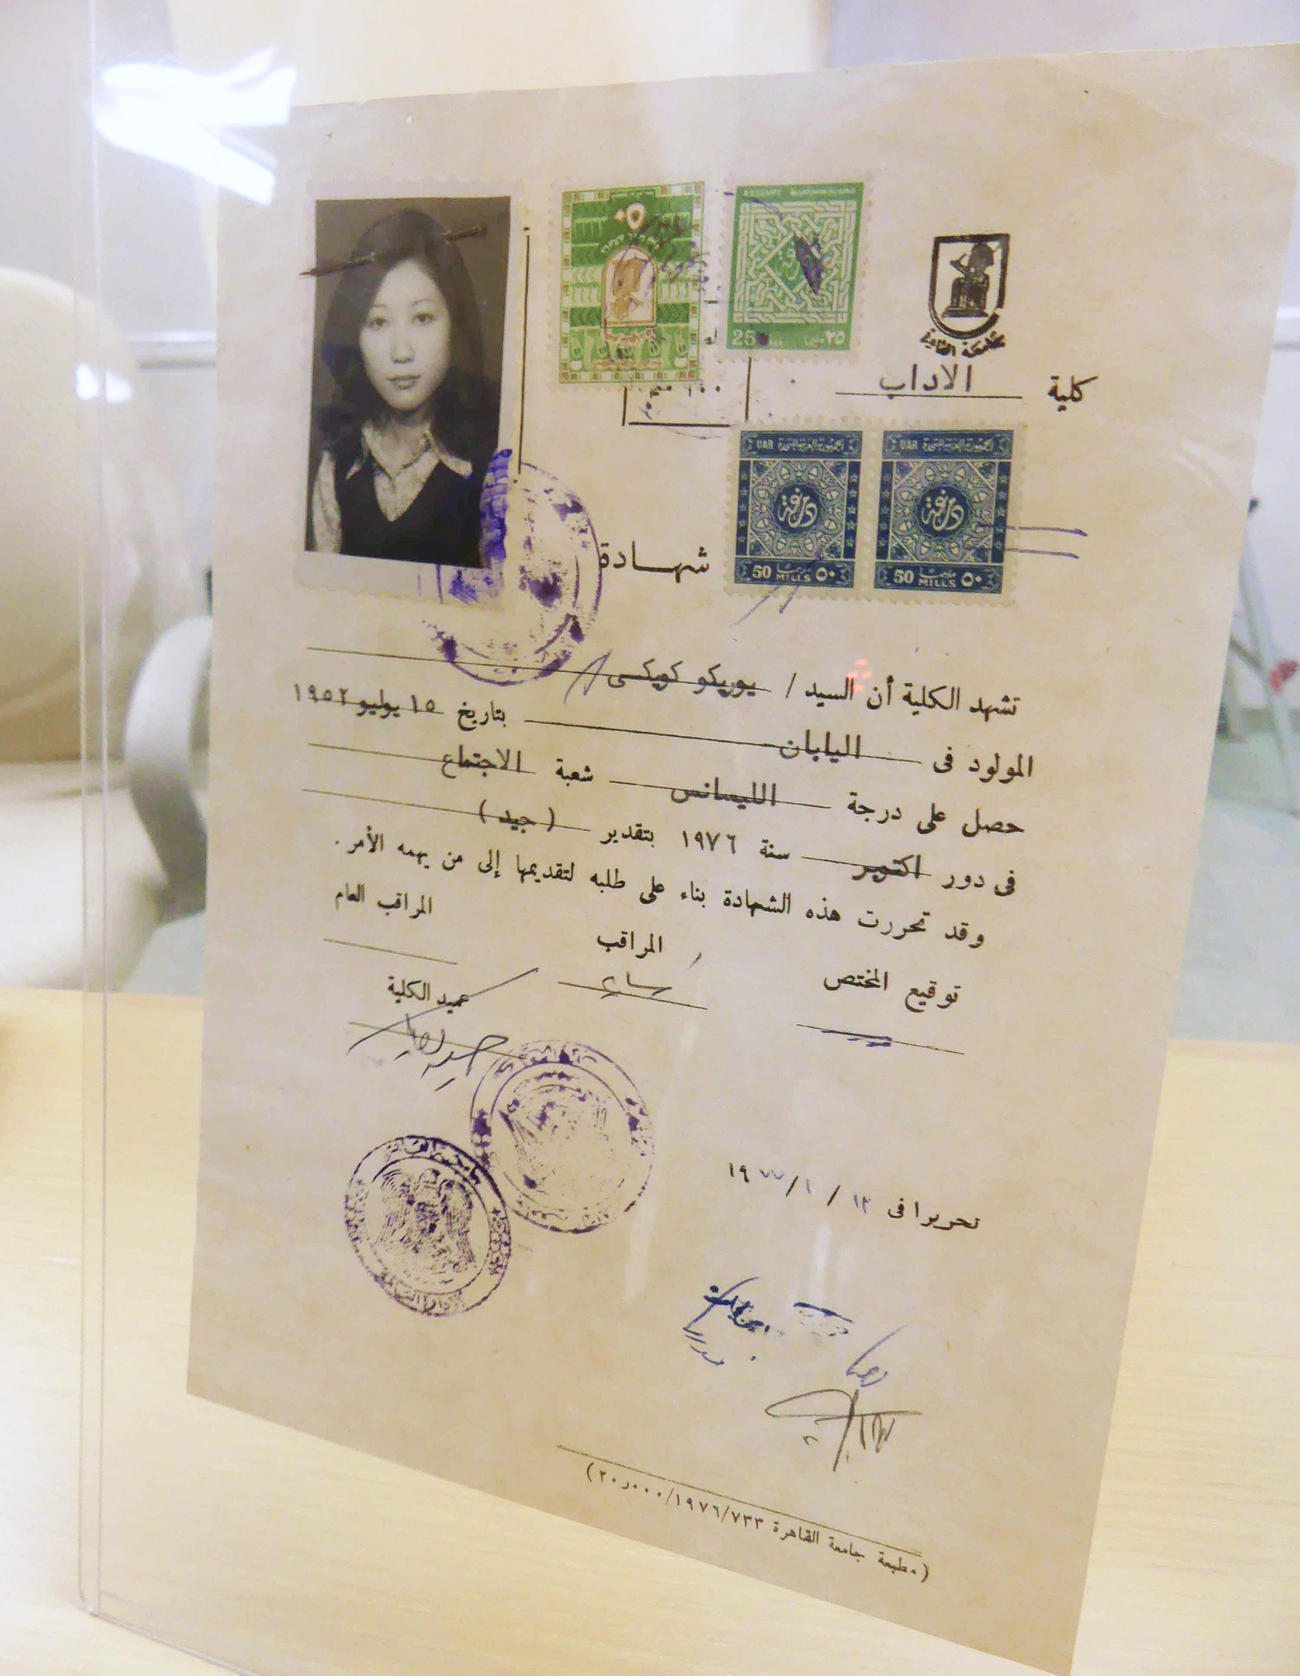 جامعة القاهرة
كلية الاداب
A.R.EGYPT
25 ٢٥ مليما
٥٠
١٠٠ مليم
UAR الجمهورية العربية المتحدة
دمغة
50 مليما ٥٠
MILLS
UAR الجمهورية العربية المتحدة
دمغة
50 مليما ٥٠
MILLS
شهـــادة
تشهد الكلية أن السيد / يوريكو كويكى
المولود فى اليابان بتاريخ ١٥ يوليو ١٩٥٢
حصل على درجة الليسانس شعبة الاجتماع
فى دور اكتوبر سنة ١٩٧٦ بتقدير ( جيد )
وقد تحررت هذه الشهادة بناء على طلبه لتقديمها إلى من يهمه الأمر .
توقيع المختص المراقب المراقب العام
عميد الكلية
تحريرا فى ١٣ / ١ / ١٩٧٧
( مطبعة جامعة القاهرة ١٩٧٦/٧٣٣/٢٠٫٠٠٠ )